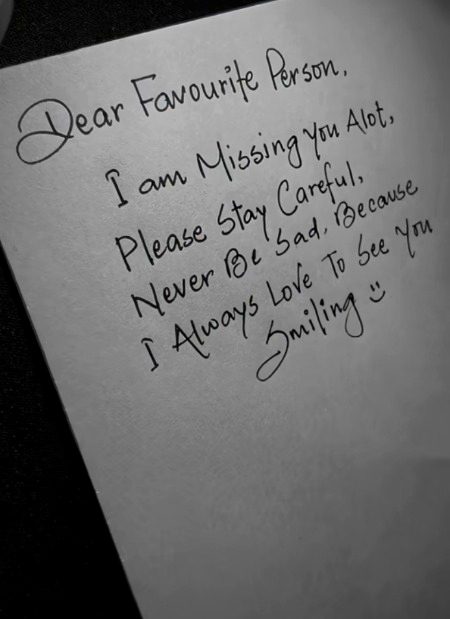 Dear Favourite Person,
I am Missing You Alot,
Please Stay Careful,
Never Be Sad. Because
I Always Love To See You
Smiling :)